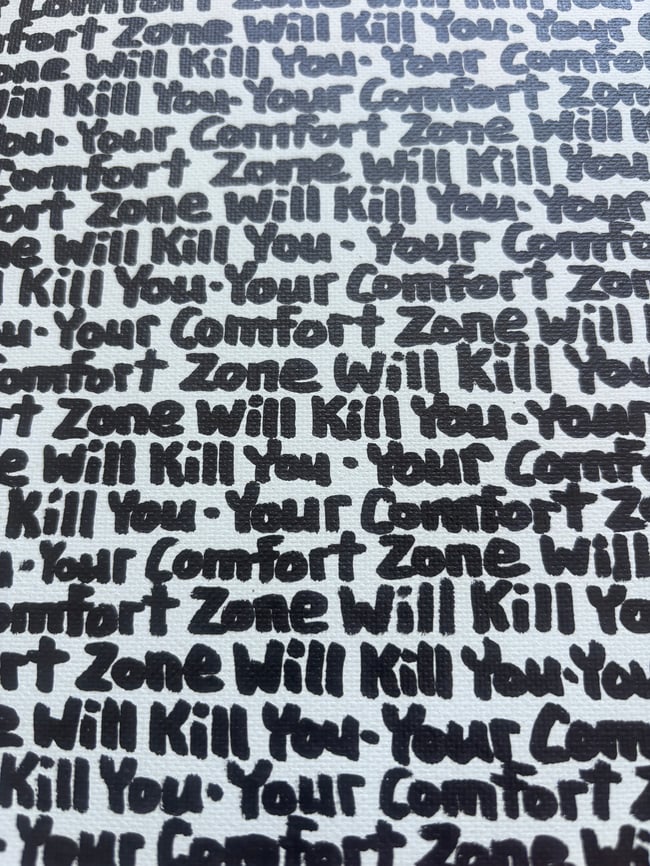 Comfort Zone Will Kill You · Your
Comfort Zone Will Kill You · Your
Zone Will Kill You · Your Comfort
Will Kill You · Your Comfort Zone
You · Your Comfort Zone Will
Comfort Zone Will Kill You
Zone Will Kill You · Your
Will Kill You · Your Comfort
Kill You · Your Comfort Zone
· Your Comfort Zone Will
Comfort Zone Will Kill You
Zone Will Kill You · Your
Will Kill You · Your Comfort
Kill You · Your Comfort
· Your Comfort Zone Will
Comfort Zone Will Kill You
Zone Will Kill You · You
Will Kill You · Your Com
Kill You · Your Comfort
Your Comfort Zone